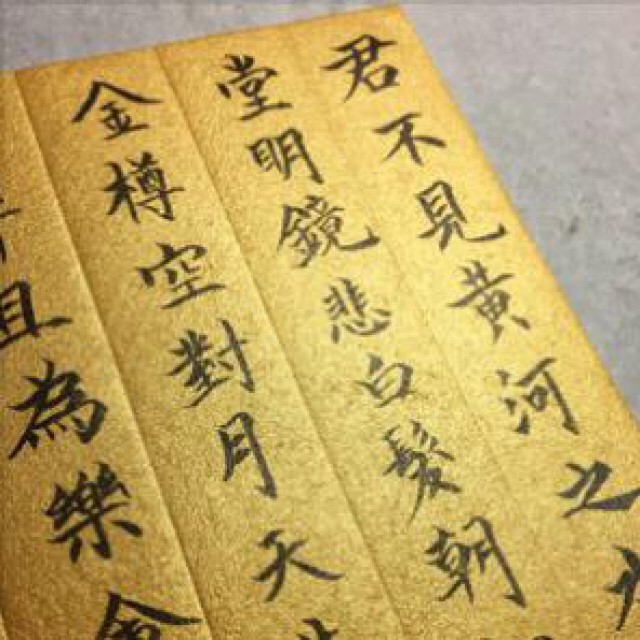 君不見黃河之
堂明鏡悲白髮朝
金樽空對月天
且為樂會